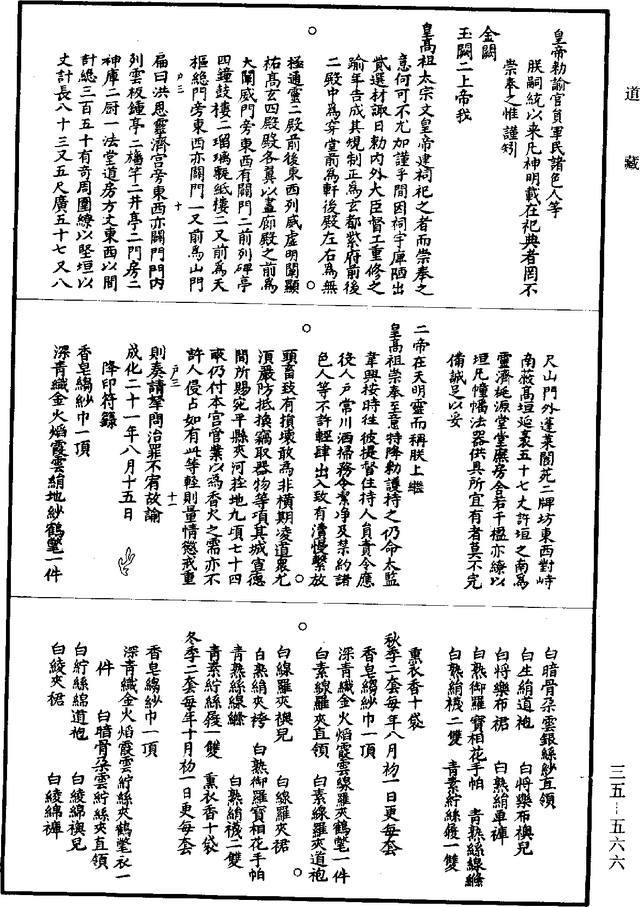 道藏
皇帝勑諭官員軍民諸色人等
朕嗣統以來凡神明載在祀典者罔不
崇奉之惟謹矧
金闕
玉闕二上帝我
皇高祖太宗文皇帝建祠祀之者而崇奉之
意何可不尤加謹乎間因祠宇庳陋出
貲選材諏日勑內外大臣督工重修之
踰年告成其規制正為玄都紫府前後
二殿中為穿堂前為軒後殿左右為無
極通靈二殿前後東西列威虛明闡顯
祐高玄四殿殿各翼以畫廊殿之前為
大闡威門旁東西有闕門二前列碑亭
四鐘鼓樓二瑠璃甎紙樓二又前為天
樞總門旁東西亦闢門一又前為山門
扁曰洪恩靈濟宮旁東西亦闢門門內
列雲板鍾亭二旛竿二井亭二門房二
神庫二厨一法堂道房方丈東西以間
計總三百五十有奇周圍繚以堅垣以
丈計長八十三又五尺廣五十七又八
尺山門外蓬萊閬苑二牌坊東西對峙
南蔽高垣延袤五十七丈許垣之南為
靈濟桃源堂堂廡房舍若干楹亦繚以
垣凡幢幡法器供具所宜有者莫不完
備誠足以妥
二帝在天明靈而稱朕上繼
皇高祖崇奉至意特降勑護持之仍命太監
韋興按時往彼提督住持人員責令應
後人戶常川洒掃務令潔净及禁約諸
色人等不許輕肆出入致有瀆慢縱放
頭畜致有損壞敢為非橫期凌道衆尤
須嚴防抵換竊取器物等項其城宣德
間所賜宛平縣夾河拴地九項七十四
畝仍付本宮管業以為香火之需亦不
許人侵占如有此等輕則量情懲戒重
則奏請拏問治罪不宥故諭
成化二十一年八月十五日
降印符籙
香皂縐紗巾一頂
深青織金火焰霞雲絹地紗鶴氅一件
白暗骨朵雲銀絲紗直領
白生絹道袍 白將樂布襖兒
白將樂布裙 白熟絹單褲
白熟御羅寶相花手帕 青熟絲線縧
白熟絹襪二雙 青素紵絲鞋一雙
薰衣香十袋
秋季二套每年八月初一日更每套
香皂縐紗巾一頂
深青織金火焰霞雲線羅夾鶴氅一件
白素線羅夾直領 白素線羅夾道袍
白線羅夾襖兒 白線羅夾裙
白熟絹夾袴 白熟御羅寶相花手帕
青熟絲線縧 白熟絹襪二雙
青素紵絲鞋一雙 薰衣香十袋
冬季二套每年十月初一日更每套
香皂縐紗巾一頂
深青織金火焰霞雲紵絲夾鶴氅衣一
件 白暗骨朵雲紵絲夾直領
白紵絲綿道袍 白綾綿襖兒
白綾夾裙 白綾綿褲
户三 十
户三 十一
三五—五六六